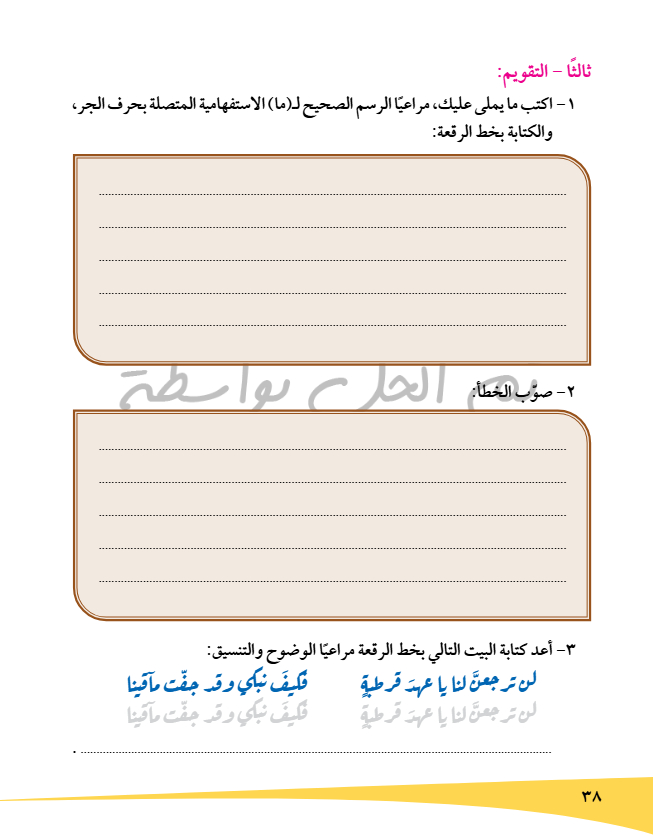 ثالثًا – التقويم:
١ – اكتب ما يملى عليك، مراعيًا الرسم الصحيح لـ(ما) الاستفهامية المتصلة بحرف الجر،
والكتابة بخط الرقعة:
تم الحل بواسطة
٢ – صوّب الخطأ:
٣ – أعد كتابة البيت التالي بخط الرقعة مراعيًا الوضوح والتنسيق:
لن ترجعنَّ لنا يا عهدَ قرطبةٍ فكيفَ نبكي وقد جفّت مآقينا
لن ترجعنَّ لنا يا عهدَ قرطبةٍ فكيفَ نبكي وقد جفّت مآقينا
٣٨